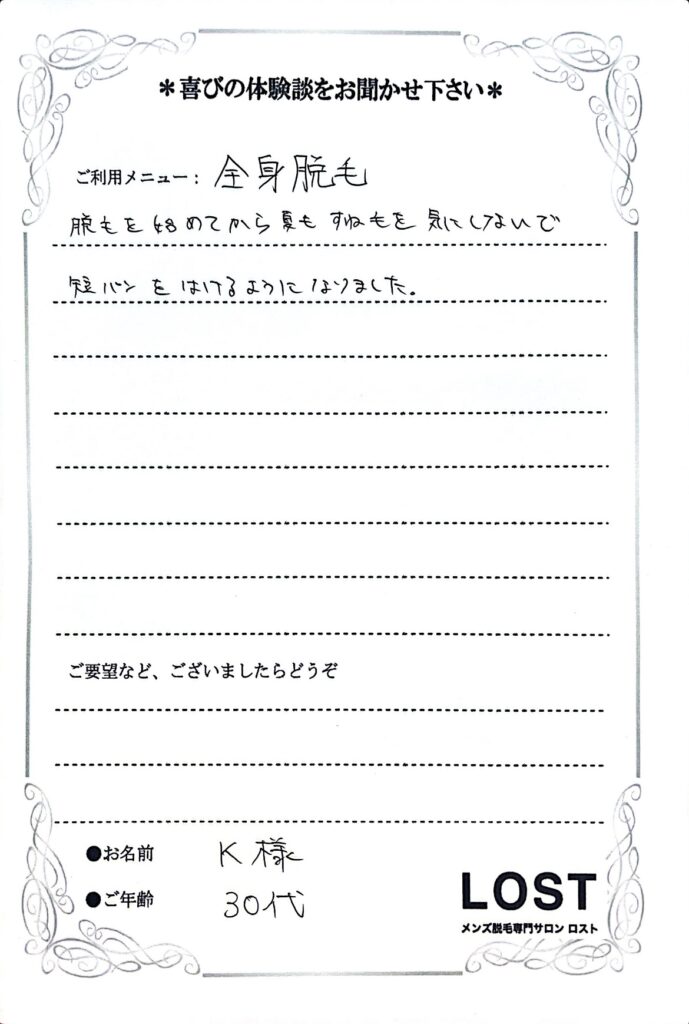 ＊喜びの体験談をお聞かせ下さい＊
ご利用メニュー： 全身脱毛
脱毛を始めてから夏もすね毛を気にしないで
短パンをはけるようになりました。
ご要望など、ございましたらどうぞ
●お名前 K様
●ご年齢 30代
LOST
メンズ脱毛専門サロン ロスト